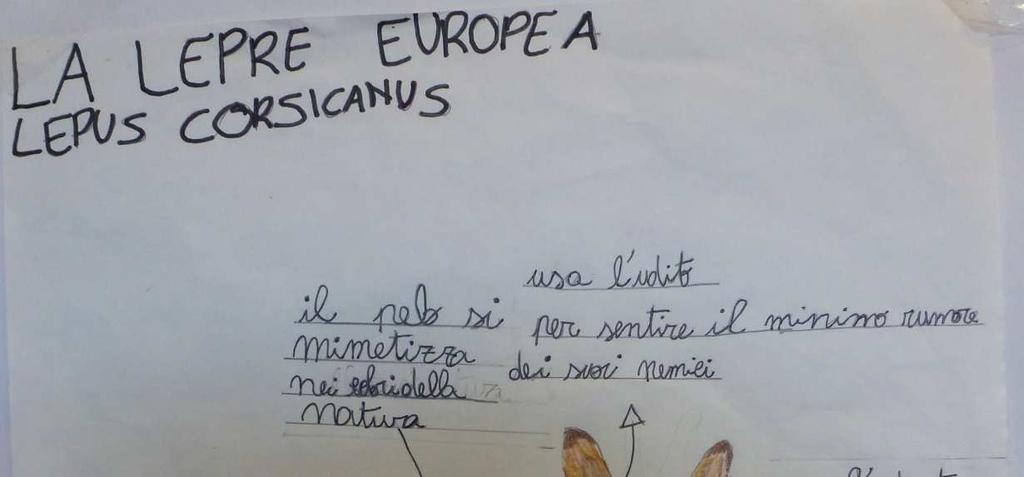 LA LEPRE EUROPEA
LEPUS CORSICANUS
usa l'udito
per sentire il minimo rumore
dei suoi nemici
il pelo si
mimetizza
nei colori della
natura